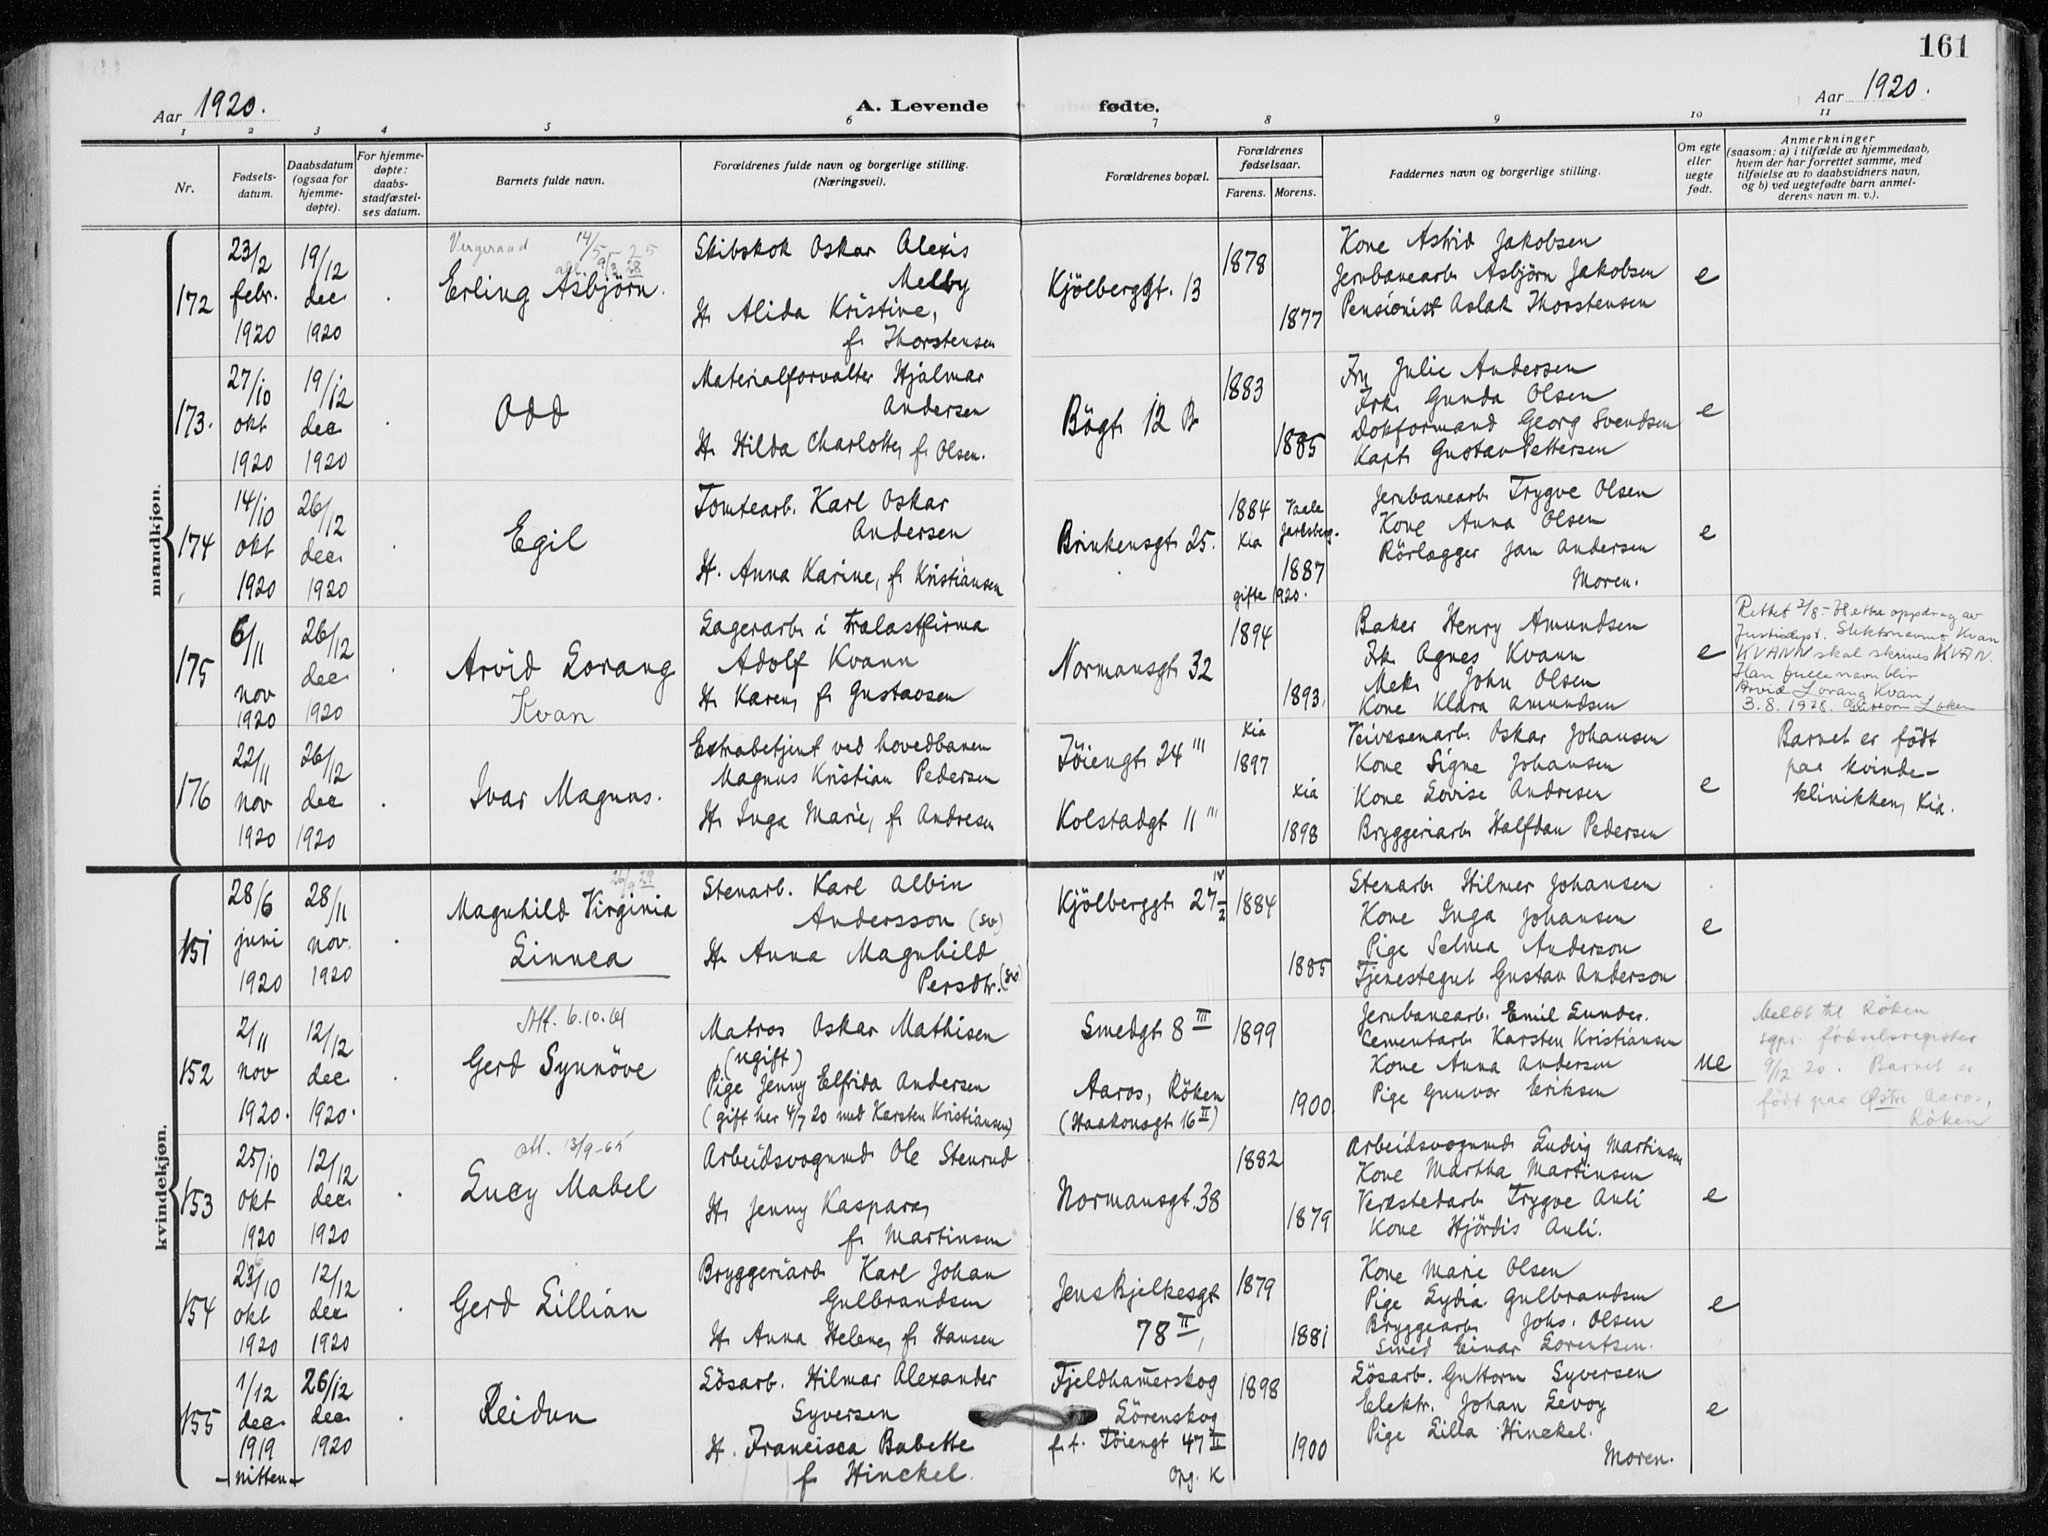 161
Aar 1920.
A. Levende fødte.
Aar 1920.
1 2 3 4 5 6 7 8 9 10 11
Nr.
Fødsels-
datum.
Daabsdatum
(ogsaa for
hjemme-
døpte).
For hjemme-
døpte:
daabs-
stadfæstel-
ses datum.
Barnets fulde navn.
Forældrenes fulde navn og borgerlige stilling.
(Næringsvei).
Forældrenes bopæl.
Forældrenes
fødselsaar.
Farens. Morens.
Faddernes navn og borgerlige stilling.
Om egte
eller
uegte
født.
Anmerkninger
(saasom: a) i tilfælde av hjemmedaab,
hvem der har forrettet samme, med
tilføielse av to daabsvidners navn,
og b) ved uegtefødte barn anmel-
derens navn m. v.).
mandkjøn.
172
23/2
febr.
1920
19/12
dec
1920
Vergeraad 14/5 25
Erling Asbjörn.
Skibskok Oskar Alexis
Melby
H. Alida Kristine,
f. Thorstensen
Kjölberggt. 13
1878
1877
Kone Astrid Jakobsen
Jernbanearb. Asbjørn Jakobsen
Pensionist Aslak Thorstensen
e
173.
27/10
okt
1920
19/12
dec
1920
Odd
Materialforvalter Hjalmar
Andersen
H. Hilda Charlotte, f. Olsen.
Bögt. 12 B
1883
1885
Fru Julie Andersen
Frk. Gunda Olsen
Dokformand Georg Svendsen
Kapt. Gustav Pettersen
e
174
14/10
okt
1920
26/12
dec.
1920
Egil
Tomtearb. Karl Oskar
Andersen
H. Anna Karine, f. Kristiansen
Brinkensgt. 25.
1884
Kia
Vaale
Jarlsberg.
1887
gifte 1920.
Jernbanearb. Trygve Olsen
Kone Anna Olsen
Rörlægger Jan Andersen
Moren.
e
175
6/11
nov
1920
26/12
dec
1920
Arvid Lorang
Kvan
Lagerarb. i Trælastfirma
Adolf Kvann
H. Karen, f. Gustavsen
Normansgt. 32
1894
1893.
Baker Henry Amundsen
Frk. Agnes Kvann
Mek. John Olsen
Kone Klara Amundsen
e
Rettet 2/8-28 etter oppdrag av
Justisdept. Slektsnavnet Kvan
KVANN skal skrives KVAN.
Han fulle navn blir
Arvid Lorang Kvan
3.8.1928. Guttorm Loken
176
22/11
nov
1920
26/12
dec
1920
Ivar Magnus.
Extrabetjent ved hovedbanen
Magnus Kristian Pedersen
H. Inga Marie, f. Andresen
Töiengt 24 III
Kolstadgt 11 III
Kia
1897
Kia
1898
Veivesenarb. Oskar Johansen
Kone Signe Johansen
Kone Lovise Andresen
Bryggeriarb. Halfdan Pedersen
e
Barnet er født
paa kvinde-
klinikken, Kia.
kvindekjøn.
151
28/6
juni
1920
28/11
nov.
1920
Magnhild Virginia
Linnea
Stenarb. Karl Albin
Andersson (sv)
H. Anna Magnhild
Persdtr. (sv)
Kjölberggt. 27 IV/2
1884
1885
Stenarb. Hilmer Johansen
Kone Inga Johansen
Pige Selma Anderson
Tjenestegut Gustav Anderson
e
152
2/11
nov
1920.
12/12
dec
1920.
Att. 6.10.61
Gerd Synnöve
Matros Oskar Mathisen
(ugift)
Pige Jenny Elfrida Andersen
(gift her 4/7 20 med Karsten Kristiansen)
Smedgt 8 III
Aaros, Röken
(Haakonsgt 16 II)
1899
1900.
Jernbanearb. Emil Lunder.
Cementarb. Karsten Kristiansen
Kone Anna Andersen
Pige Gunvor Eriksen
ue
Meldt til Röken
sgpr. fødselsregister
9/12 20. Barnet er
født paa Østre Aaros,
Röken
153
25/10
okt
1920
12/12
dec
1920
Att. 13/9-65
Lucy Mabel
Arbeidsvognmd. Ole Stenrud
H. Jenny Kaspara,
f. Martinsen
Normansgt. 38
1882
1879
Arbeidsvognmd. Ludvig Martinsen
Kone Martha Martinsen
Verkstedarb. Trygve Auli
Kone Hjördis Auli.
e
154
23/10
okt
1920
12/12
dec
1920
Gerd Lillian
Bryggeriarb. Karl Johan
Gulbrandsen
H. Anna Helene, f. Hansen
Jens Bjelkesgt
78 II,
1879
1881
Kone Marie Olsen
Pige Lydia Gulbrandsen
Bryggearb. Johs. Olsen
Smed Einar Lorentsen.
e
155
1/12
dec.
1919
-nitten-
26/12
dec
1920
Reidun
Lösarb. Hilmar Alexander
Syversen
H. Francisca Babette
f. Hinckel.
Fjeldhamerskog
Lörenskog
f. t. Töiengt 47 II
Opg. K
1898
1900
Lösarb. Guttorm Syversen
Elektr. Johan Levoy
Pige Lilla Hinckel.
Moren.
e